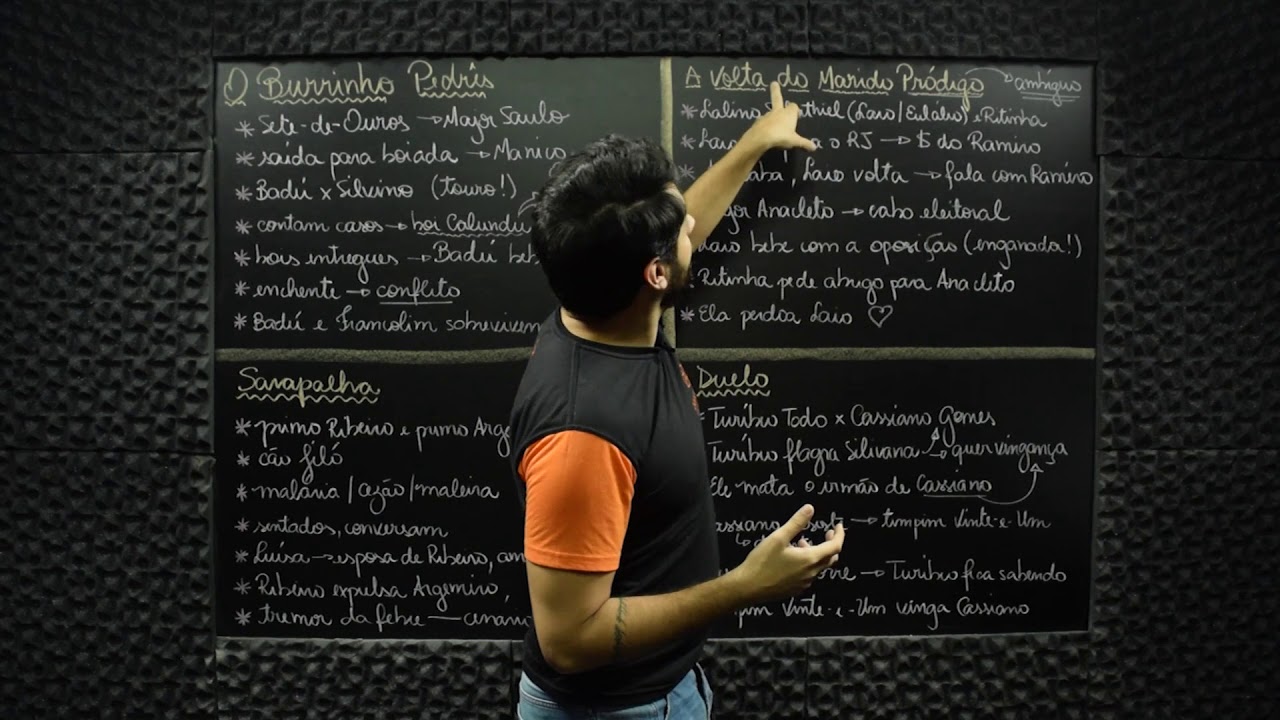 O Burrinho Pedrês
* Sete-de-Ouros → Major Saulo
* saída para boiada → Manico
* Badú x Silvino (touro!)
* contam casos → boi Calundu
* bois entregues → Badú beb
* enchente → conflito
* Badú e Francolim sobrevivem
A Volta do Marido Pródigo → ambíguo
* Lalino (Laio/Eulálio) e Ritinha
* o RJ → $ do Ramiro
* , Laio volta → fala com Ramiro
Anacleto → cabo eleitoral
Laio bebe com a oposição (enganada!)
* Ritinha pede abrigo para Anacleto
* Ela perdoa Laio ♡
Sarapalha
* primo Ribeiro e primo Arge
* cão filó
* malária / cezão / maleira
* sentados, conversam
* Luísa → esposa de Ribeiro,
* Ribeiro expulsa Argemiro,
* tremor da febre —
Duelo
* Turíbio Todo x Cassiano Gomes
Turíbio flagra Silivana → quer vingança
Ele mata o irmão de Cassiano
→ timpim Vinte-e-Um
→ Turíbio fica sabendo
Vinte-e-Um vinga Cassiano